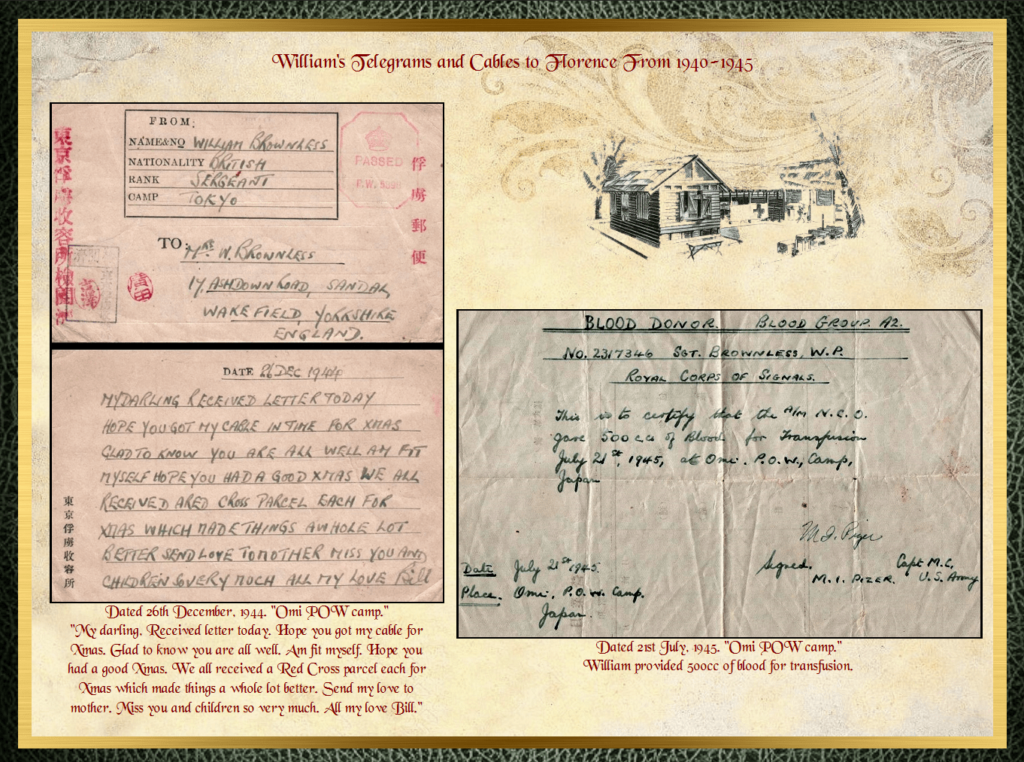 William's Telegrams and Cables to Florence From 1940-1945
FROM:
NAME&NO WILLIAM BROWNLESS
NATIONALITY BRITISH
RANK SERGEANT
CAMP TOKYO
PASSED
P.W.
俘虜郵便
東京俘虜收容所檢閲濟
TO: MRS W. BROWNLESS
17, ASHDOWN ROAD, SANDAL,
WAKEFIELD, YORKSHIRE
ENGLAND.
DATE 26 DEC 1944
MY DARLING RECEIVED LETTER TODAY
HOPE YOU GOT MY CABLE IN TIME FOR XMAS
GLAD TO KNOW YOU ARE ALL WELL AM FIT
MYSELF HOPE YOU HAD A GOOD XMAS WE ALL
RECEIVED A RED CROSS PARCEL EACH FOR
XMAS WHICH MADE THINGS A WHOLE LOT
BETTER SEND LOVE TO MOTHER MISS YOU AND
CHILDREN SO VERY MUCH ALL MY LOVE Bill
東京俘虜收容所
Dated 26th December, 1944. "Omi POW camp."
"My darling. Received letter today. Hope you got my cable for
Xmas. Glad to know you are all well. Am fit myself. Hope you
had a good Xmas. We all received a Red Cross parcel each for
Xmas which made things a whole lot better. Send my love to
mother. Miss you and children so very much. All my love Bill."
BLOOD DONOR. BLOOD GROUP. A2.
No. 2317346 SGT. BROWNLESS, W.P.
ROYAL CORPS OF SIGNALS.
This is to certify that the A/M N.C.O.
gave 500 cc of Blood for Transfusion
July 21st, 1945, at Omi. P.O.W., Camp,
Japan
M. I. Pizer
Signed. Capt M.C,
M. I. PIZER. U.S. Army
Date July 21st 1945.
Place. Omi. P.O.W. Camp.
Japan.
Dated 21st July, 1945. "Omi POW camp."
William provided 500cc of blood for transfusion.